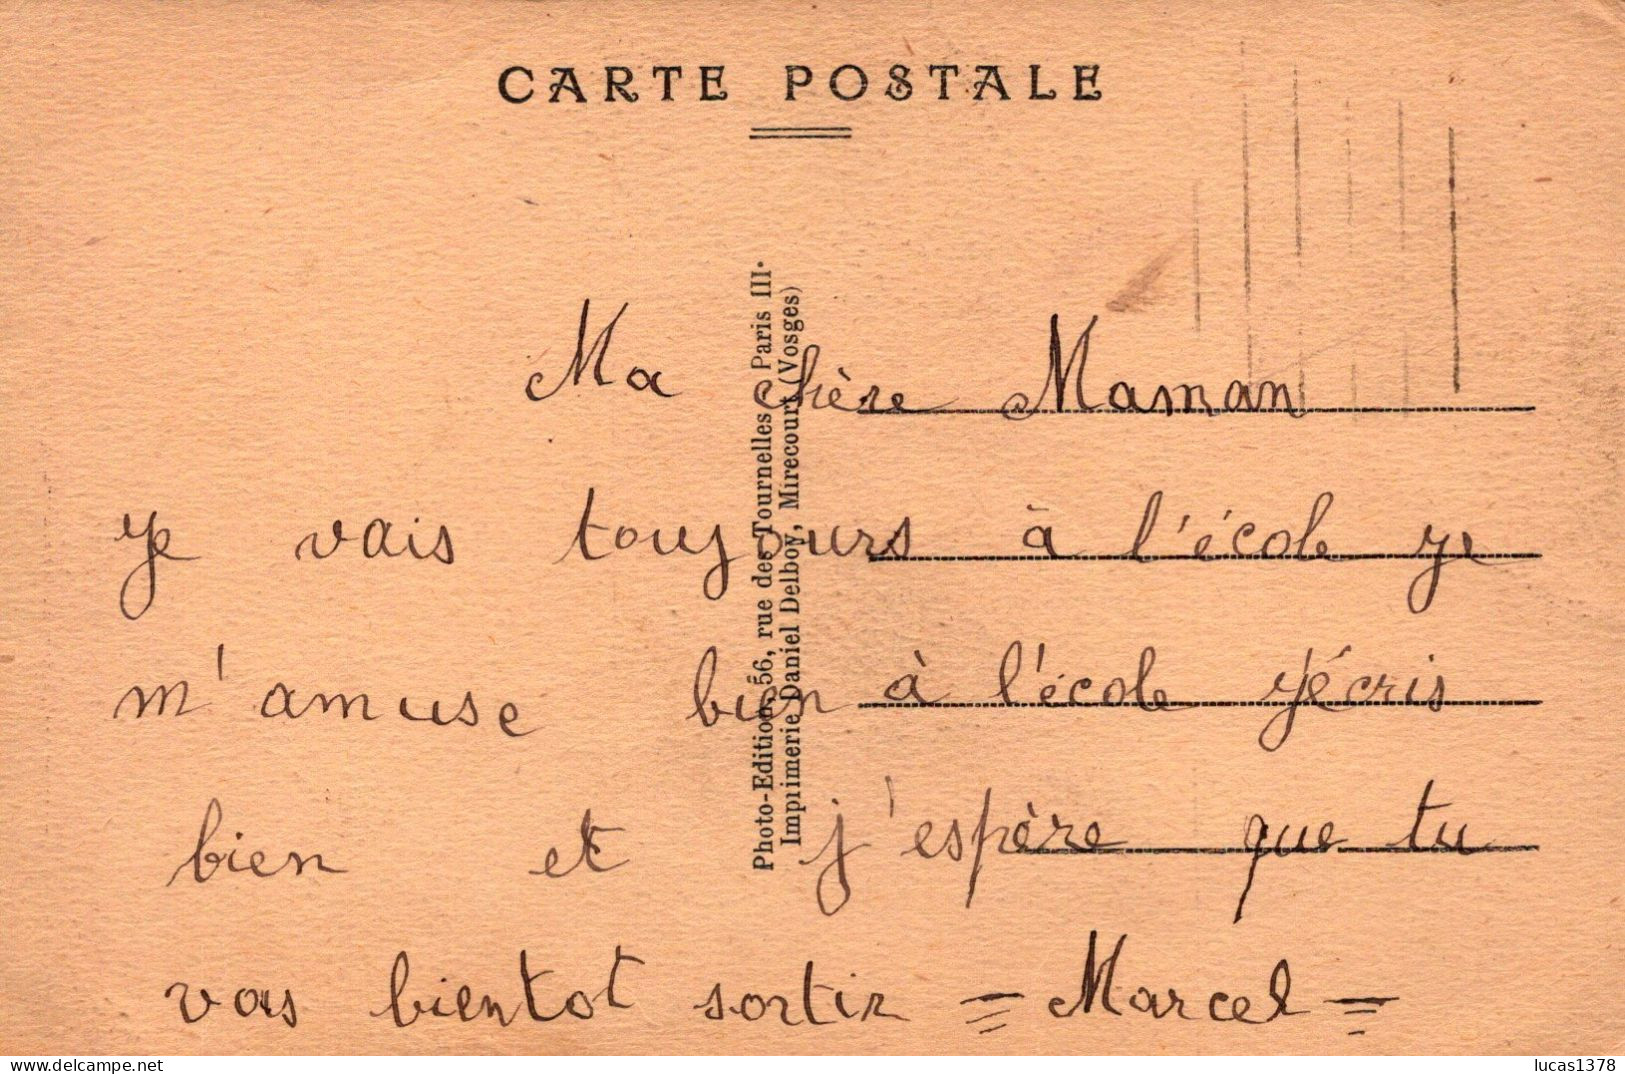 CARTE POSTALE
Photo-Edition, 56, rue des Tournelles Paris III·
Imprimerie Daniel Delboy, Mirecourt (Vosges)
Ma chère Maman
je vais toujours à l'école je
m'amuse bien à l'école J'écris
bien et j'espère que tu
vas bientot sortir = Marcel =
delcampe.net
lucas1378